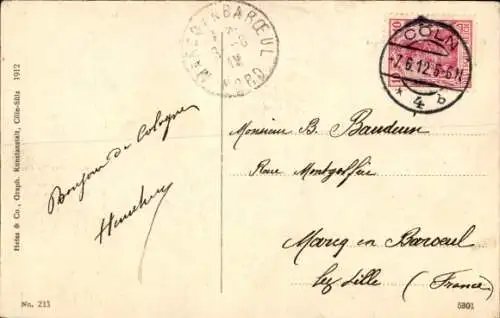 MARCQ-EN-BARŒUL
NORD
CÖLN
-7.6.12.5-6N
* 4 b
Heiss & Co., Graph. Kunstanstalt, Cöln-Sülz 1912
Bonjour de Cologne
Monsieur B. Bauduin
Rue Montgolfier
Marcq en Baroeul
lez Lille (France)
No. 233
5801